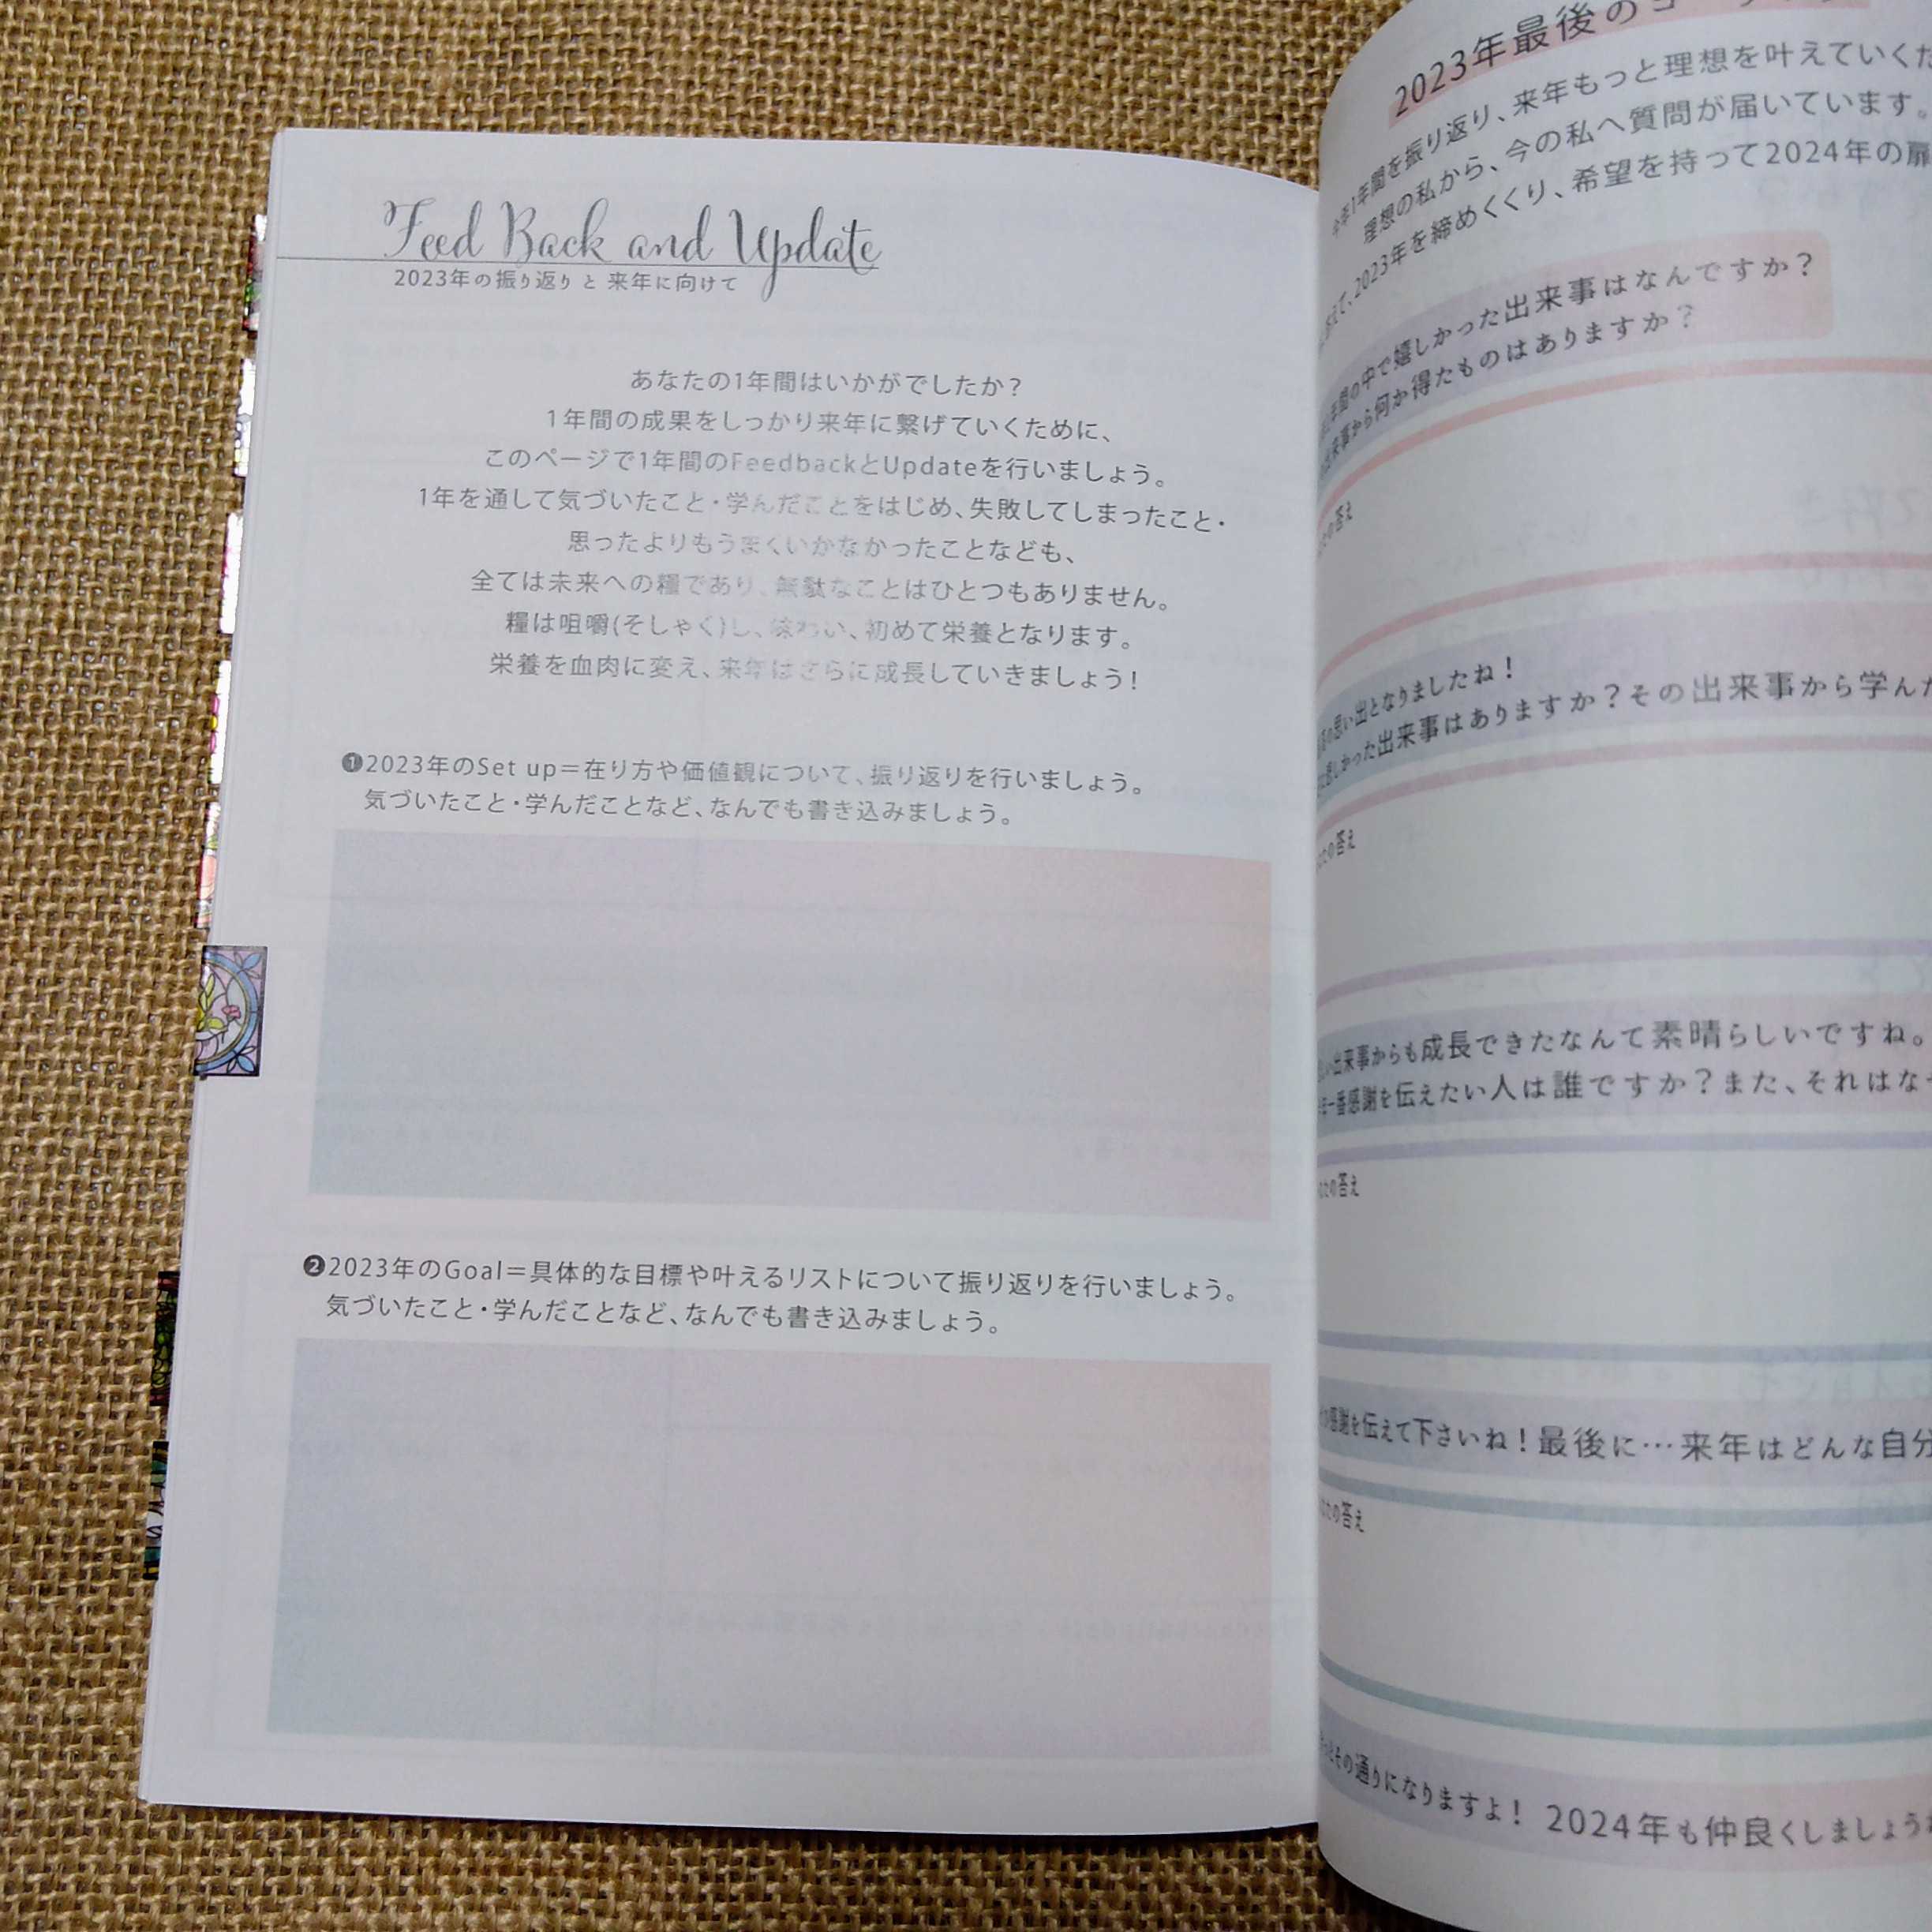 Feed Back and Update
2023年の振り返り と 来年に向けて
あなたの1年間はいかがでしたか？
1年間の成果をしっかり来年に繋げていくために、
このページで1年間のFeedbackとUpdateを行いましょう。
1年を通して気づいたこと・学んだことをはじめ、失敗してしまったこと・
思ったよりもうまくいかなかったことなども、
全ては未来への糧であり、無駄なことはひとつもありません。
糧は咀嚼(そしゃく)し、味わい、初めて栄養となります。
栄養を血肉に変え、来年はさらに成長していきましょう！
❶2023年のSet up＝在り方や価値観について、振り返りを行いましょう。
気づいたこと・学んだことなど、なんでも書き込みましょう。
❷2023年のGoal＝具体的な目標や叶えるリストについて振り返りを行いましょう。
気づいたこと・学んだことなど、なんでも書き込みましょう。
2023年最後の
今年1年間を振り返り、来年もっと理想を叶えていくた
理想の私から、今の私へ質問が届いています。
えて、2023年を締めくくり、希望を持って2024年の扉
年間の中で嬉しかった出来事はなんですか？
出来事から何か得たものはありますか？
の答え
の思い出となりましたね！
しかった出来事はありますか？その出来事から学んだ
たの答え
出来事からも成長できたなんて素晴らしいですね。
一番感謝を伝えたい人は誰ですか？また、それはなぜ
たの答え
感謝を伝えて下さいね！最後に…来年はどんな自分
たの答え
その通りになりますよ！ 2024年も仲良くしましょう